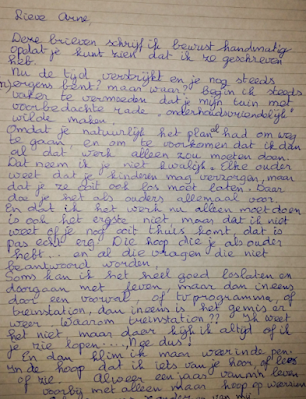 Lieve Arne
Deze brieven schrijf ik bewust handmatig
opdat je kunt zien dat ik ze geschreven
heb.
Nu de tijd verstrijkt en je nog steeds
ergens bent! maar waar? Begin ik steeds
vaker te vermoeden dat je mijn tuin met
voorbedachte rade, onderhoudsvriendelijk"
wilde maken.
Omdat je natuurlijk het plan al had om weg
te gaan en om te voorkomen dat ik dan
al dat werk alleen zou moeten doen.
Dat neem ik je niet kwalijk. Elke ouder
weet dat je kinderen mag verzorgen, maar
dat je ze ooit ook los moet laten. Daar
doe je het als ouders allemaal voor.
En dat ik het werk nu alleen moet doen
is ook het ergste niet, maar dat ik niet
weet of je nog ooit thuis komt, dat is
pas echt erg. Die hoop die je als ouder
hebt... en al die vragen die niet
beantwoord worden.
Soms kan ik het heel goed loslaten en
doorgaan met leven, maar dan ineens
door een voorval of tv programma, of
treinstation, dan ineens is het gemis er
weer. Waarom treinstation?? Ik weet
het niet maar daar kijk ik altijd of ik
je zie lopen....., Nee dus!
En dan klim ik maar weer in de pen.
In de hoop dat ik iets van je hoor, of lees
of zie. Alweer een jaar van mijn leven
voorbij met alleen maar hoop op